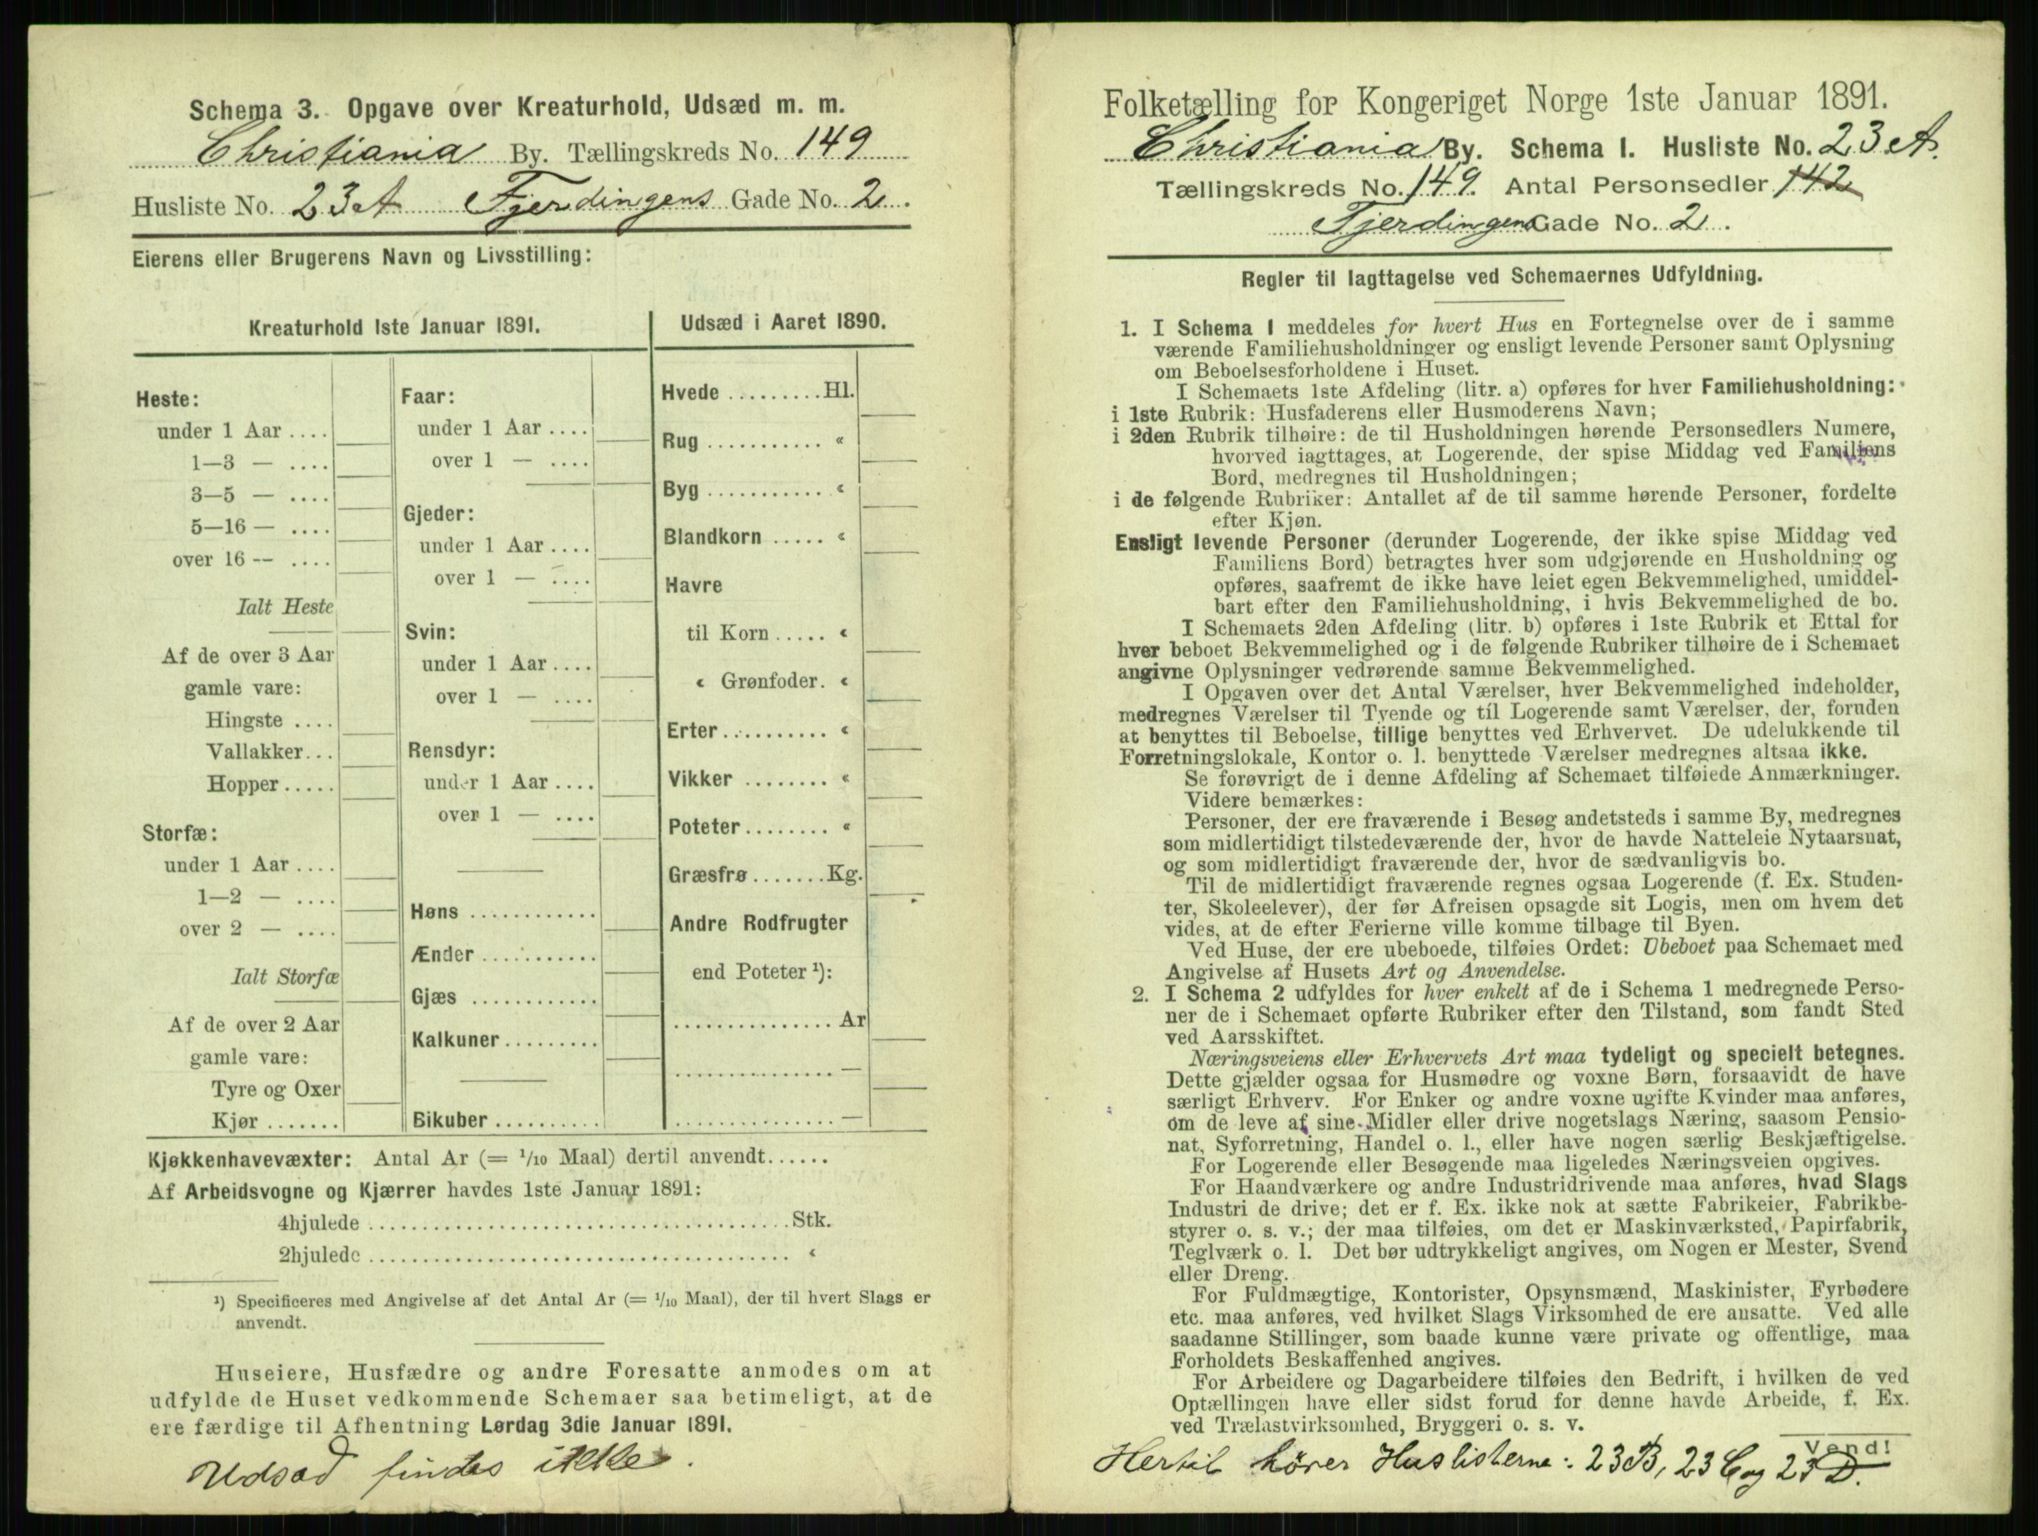 Schema 3. Opgave over Kreaturhold, Udsæd m. m.
Christiania By. Tællingskreds No. 149
Husliste No. 23 A Fjerdingens Gade No. 2.
Eierens eller Brugerens Navn og Livsstilling:
Kreaturhold 1ste Januar 1891.
Heste:
under 1 Aar ....
1—3 — ....
3—5 — ....
5—16 — ....
over 16 -- ....
Ialt Heste
Af de over 3 Aar
gamle vare:
Hingste ....
Vallakker...
Hopper.....
Storfæ:
under 1 Aar ....
1—2 — ....
over 2 — ....
Ialt Storfæ
Af de over 2 Aar
gamle vare:
Tyre og Oxer
Kjør .......
Faar:
under 1 Aar ....
over 1 — ....
Gjeder:
under 1 Aar ....
over 1 — ....
Svin:
under 1 Aar ....
over 1 — ....
Rensdyr:
under 1 Aar ....
over 1 — ....
Høns ............
Ænder ...........
Gjæs ............
Kalkuner.........
Bikuber ..........
Udsæd i Aaret 1890.
Hvede .........Hl.
Rug ........... «
Byg ........... «
Blandkorn ..... «
Havre
til Korn ..... «
« Grønfoder. «
Erter.......... «
Vikker ........ «
Poteter........ «
Græsfrø.......Kg.
Andre Rodfrugter
end Poteter ¹):
............... Ar
............... —
............... —
Kjøkkenhavevæxter: Antal Ar (= 1/10 Maal) dertil anvendt......
Af Arbeidsvogne og Kjærrer havdes 1ste Januar 1891:
4hjulede ........................................Stk.
2hjulede ........................................ «
¹) Specificeres med Angivelse af det Antal Ar (= 1/10 Maal), der til hvert Slags er
anvendt.
Huseiere, Husfædre og andre Foresatte anmodes om at
udfylde de Huset vedkommende Schemaer saa betimeligt, at de
ere færdige til Afhentning Lørdag 3die Januar 1891.
Udsæd findes ikke.
Folketælling for Kongeriget Norge 1ste Januar 1891.
Christiania By. Schema I. Husliste No. 23 A.
Tællingskreds No. 149. Antal Personsedler 142
Fjerdingens Gade No. 2.
Regler til Iagttagelse ved Schemaernes Udfyldning.
1. I Schema 1 meddeles for hvert Hus en Fortegnelse over de i samme
værende Familiehusholdninger og ensligt levende Personer samt Oplysning
om Beboelsesforholdene i Huset.
I Schemaets 1ste Afdeling (litr. a) opføres for hver Familiehusholdning:
i 1ste Rubrik: Husfaderens eller Husmoderens Navn;
i 2den Rubrik tilhøire: de til Husholdningen hørende Personsedlers Numere,
hvorved iagttages, at Logerende, der spise Middag ved Familiens
Bord, medregnes til Husholdningen;
i de følgende Rubriker: Antallet af de til samme hørende Personer, fordelte
efter Kjøn.
Ensligt levende Personer (derunder Logerende, der ikke spise Middag ved
Familiens Bord) betragtes hver som udgjørende en Husholdning og
opføres, saafremt de ikke have leiet egen Bekvemmelighed, umiddel-
bart efter den Familiehusholdning, i hvis Bekvemmelighed de bo.
I Schemaets 2den Afdeling (litr. b) opføres i 1ste Rubrik et Ettal for
hver beboet Bekvemmelighed og i de følgende Rubriker tilhøire de i Schemaet
angivne Oplysninger vedrørende samme Bekvemmelighed.
I Opgaven over det Antal Værelser, hver Bekvemmelighed indeholder,
medregnes Værelser til Tyende og til Logerende samt Værelser, der, foruden
at benyttes til Beboelse, tillige benyttes ved Erhvervet. De udelukkende til
Forretningslokale, Kontor o. l. benyttede Værelser medregnes altsaa ikke.
Se forøvrigt de i denne Afdeling af Schemaet tilføiede Anmærkninger.
Videre bemærkes:
Personer, der ere fraværende i Besøg andetsteds i samme By, medregnes
som midlertidigt tilstedeværende der, hvor de havde Natteleie Nytaarsnat,
og som midlertidigt fraværende der, hvor de sædvanligvis bo.
Til de midlertidigt fraværende regnes ogsaa Logerende (f. Ex. Studen-
ter, Skoleelever), der før Afreisen opsagde sit Logis, men om hvem det
vides, at de efter Ferierne ville komme tilbage til Byen.
Ved Huse, der ere ubeboede, tilføies Ordet: Ubeboet paa Schemaet med
Angivelse af Husets Art og Anvendelse.
2. I Schema 2 udfyldes for hver enkelt af de i Schema 1 medregnede Perso-
ner de i Schemaet opførte Rubriker efter den Tilstand, som fandt Sted
ved Aarsskiftet.
Næringsveiens eller Erhvervets Art maa tydeligt og specielt betegnes.
Dette gjælder ogsaa for Husmødre og voxne Børn, forsaavidt de have
særligt Erhverv. For Enker og andre voxne ugifte Kvinder maa anføres,
om de leve af sine Midler eller drive nogetslags Næring, saasom Pensio-
nat, Syforretning, Handel o. l., eller have nogen særlig Beskjæftigelse.
For Logerende eller Besøgende maa ligeledes Næringsveien opgives.
For Haandværkere og andre Industridrivende maa anføres, hvad Slags
Industri de drive; det er f. Ex. ikke nok at sætte Fabrikeier, Fabrikbe-
styrer o. s. v.; der maa tilføies, om det er Maskinværksted, Papirfabrik,
Teglværk o. l. Det bør udtrykkeligt angives, om Nogen er Mester, Svend
eller Dreng.
For Fuldmægtige, Kontorister, Opsynsmænd, Maskinister, Fyrbødere
etc. maa anføres, ved hvilket Slags Virksomhed de ere ansatte. Ved alle
saadanne Stillinger, som baade kunne være private og offentlige, maa
Forholdets Beskaffenhed angives.
For Arbeidere og Dagarbeidere tilføies den Bedrift, i hvilken de ved
Optællingen have eller sidst forud for denne havde Arbeide, f. Ex.
ved Trælastvirksomhed, Bryggeri o. s. v.
Vend!
Hertil hører Huslisterne: 23 B, 23 C og 23 D.